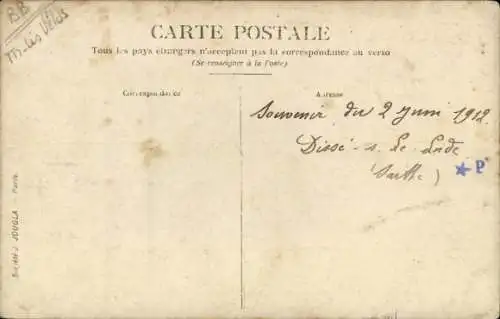 BB
CARTE POSTALE
Tous les pays étrangers n'acceptent pas la correspondance au verso
(Se renseigner à la Poste)
Correspondance
Adresse
Souvenir du 2 Juin 1912
Dissé-s-le-Lude
(Sarthe)
★P
JOUGLA - Paris